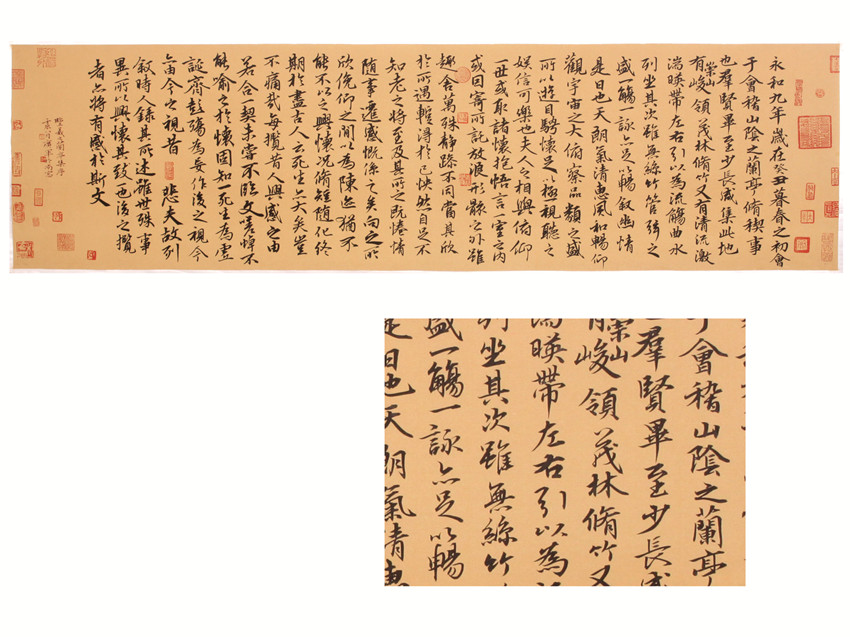 永和九年歲在癸丑暮春之初會
于會稽山陰之蘭亭脩稧事
也羣賢畢至少長咸集此地
有崇山峻領茂林脩竹又有清流激
湍暎帶左右引以為流觴曲水
列坐其次雖無絲竹管弦之
盛一觴一詠亦足以暢敘幽情
是日也天朗氣清惠風和暢仰
觀宇宙之大俯察品類之盛
所以遊目騁懷足以極視聽之
娛信可樂也夫人之相與俯仰
一世或取諸懷抱悟言一室之內
或因寄所託放浪形骸之外雖
趣舍萬殊靜躁不同當其欣
於所遇暫得於己怏然自足不
知老之將至及其所之既惓情
隨事遷感慨係之矣向之所
欣俛仰之間以為陳迹猶不
能不以之興懷況脩短隨化終
期於盡古人云死生亦大矣豈
不痛哉每攬昔人興感之由
若合一契未嘗不臨文嗟悼不
能喻之於懷固知一死生為虛
誕齊彭殤為妄作後之視今
亦由今之視昔 悲夫故列
敘時人錄其所述雖世殊事
異所以興懷其致一也後之攬
者亦將有感於斯文
于會稽山陰之蘭亭
羣賢畢至少長咸
有崇山峻領茂林脩竹又
湍暎帶左右引以為
列坐其次雖無絲竹
盛一觴一詠亦足以暢
是日也天朗氣清惠